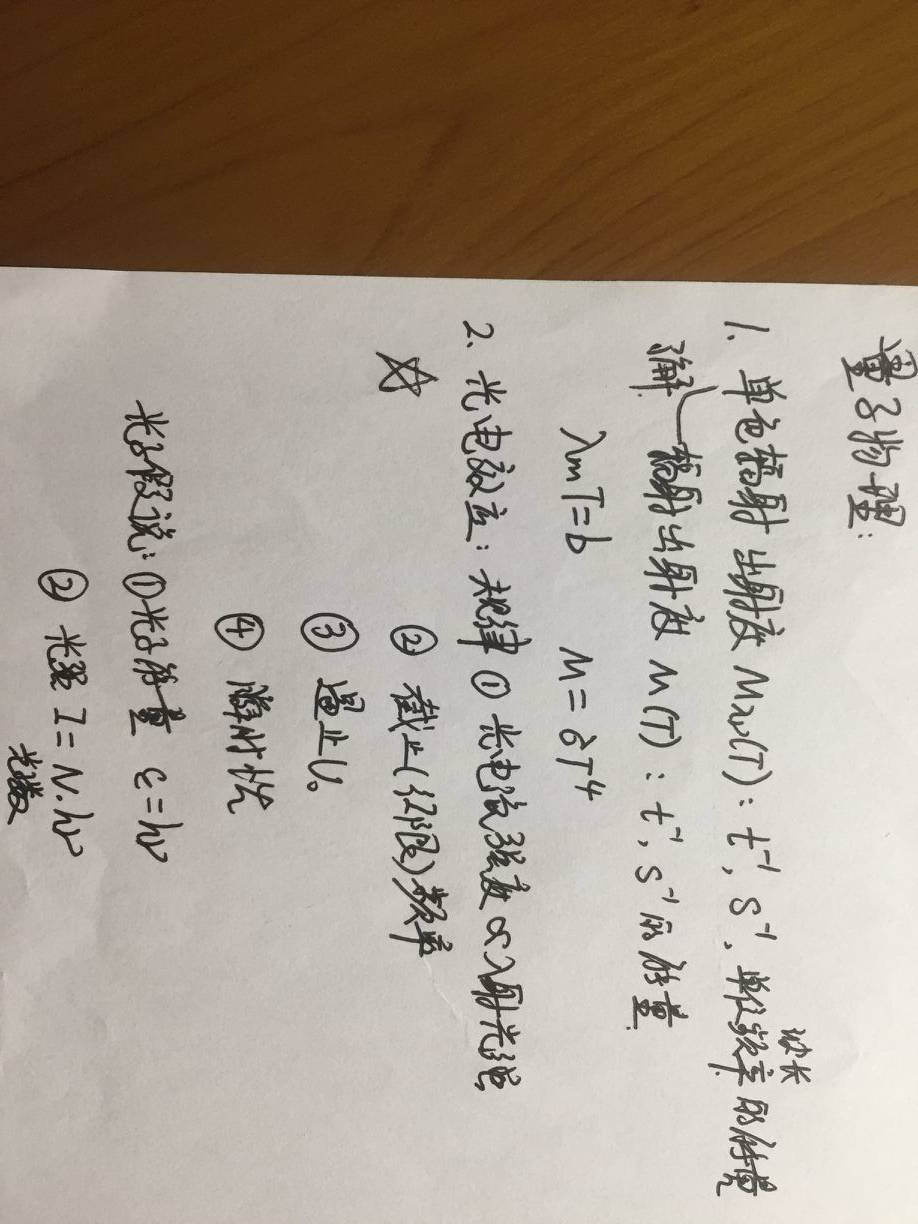 量子物理:
1. 单色辐射出射度 Mν(T): t⁻¹, S⁻¹, 单位频率的能量
波长
了解 辐射出射度 M(T): t⁻¹, S⁻¹的能量.
λmT=b M=δT⁴
2. 光电效应: 规律 ① 光电流强度∝入射光强
☆ ② 截止(红限)频率
③ 遏止U。
④ 瞬时性
光子假说: ①光子能量 ε=hν
② 光强 I=N·hν
光子数